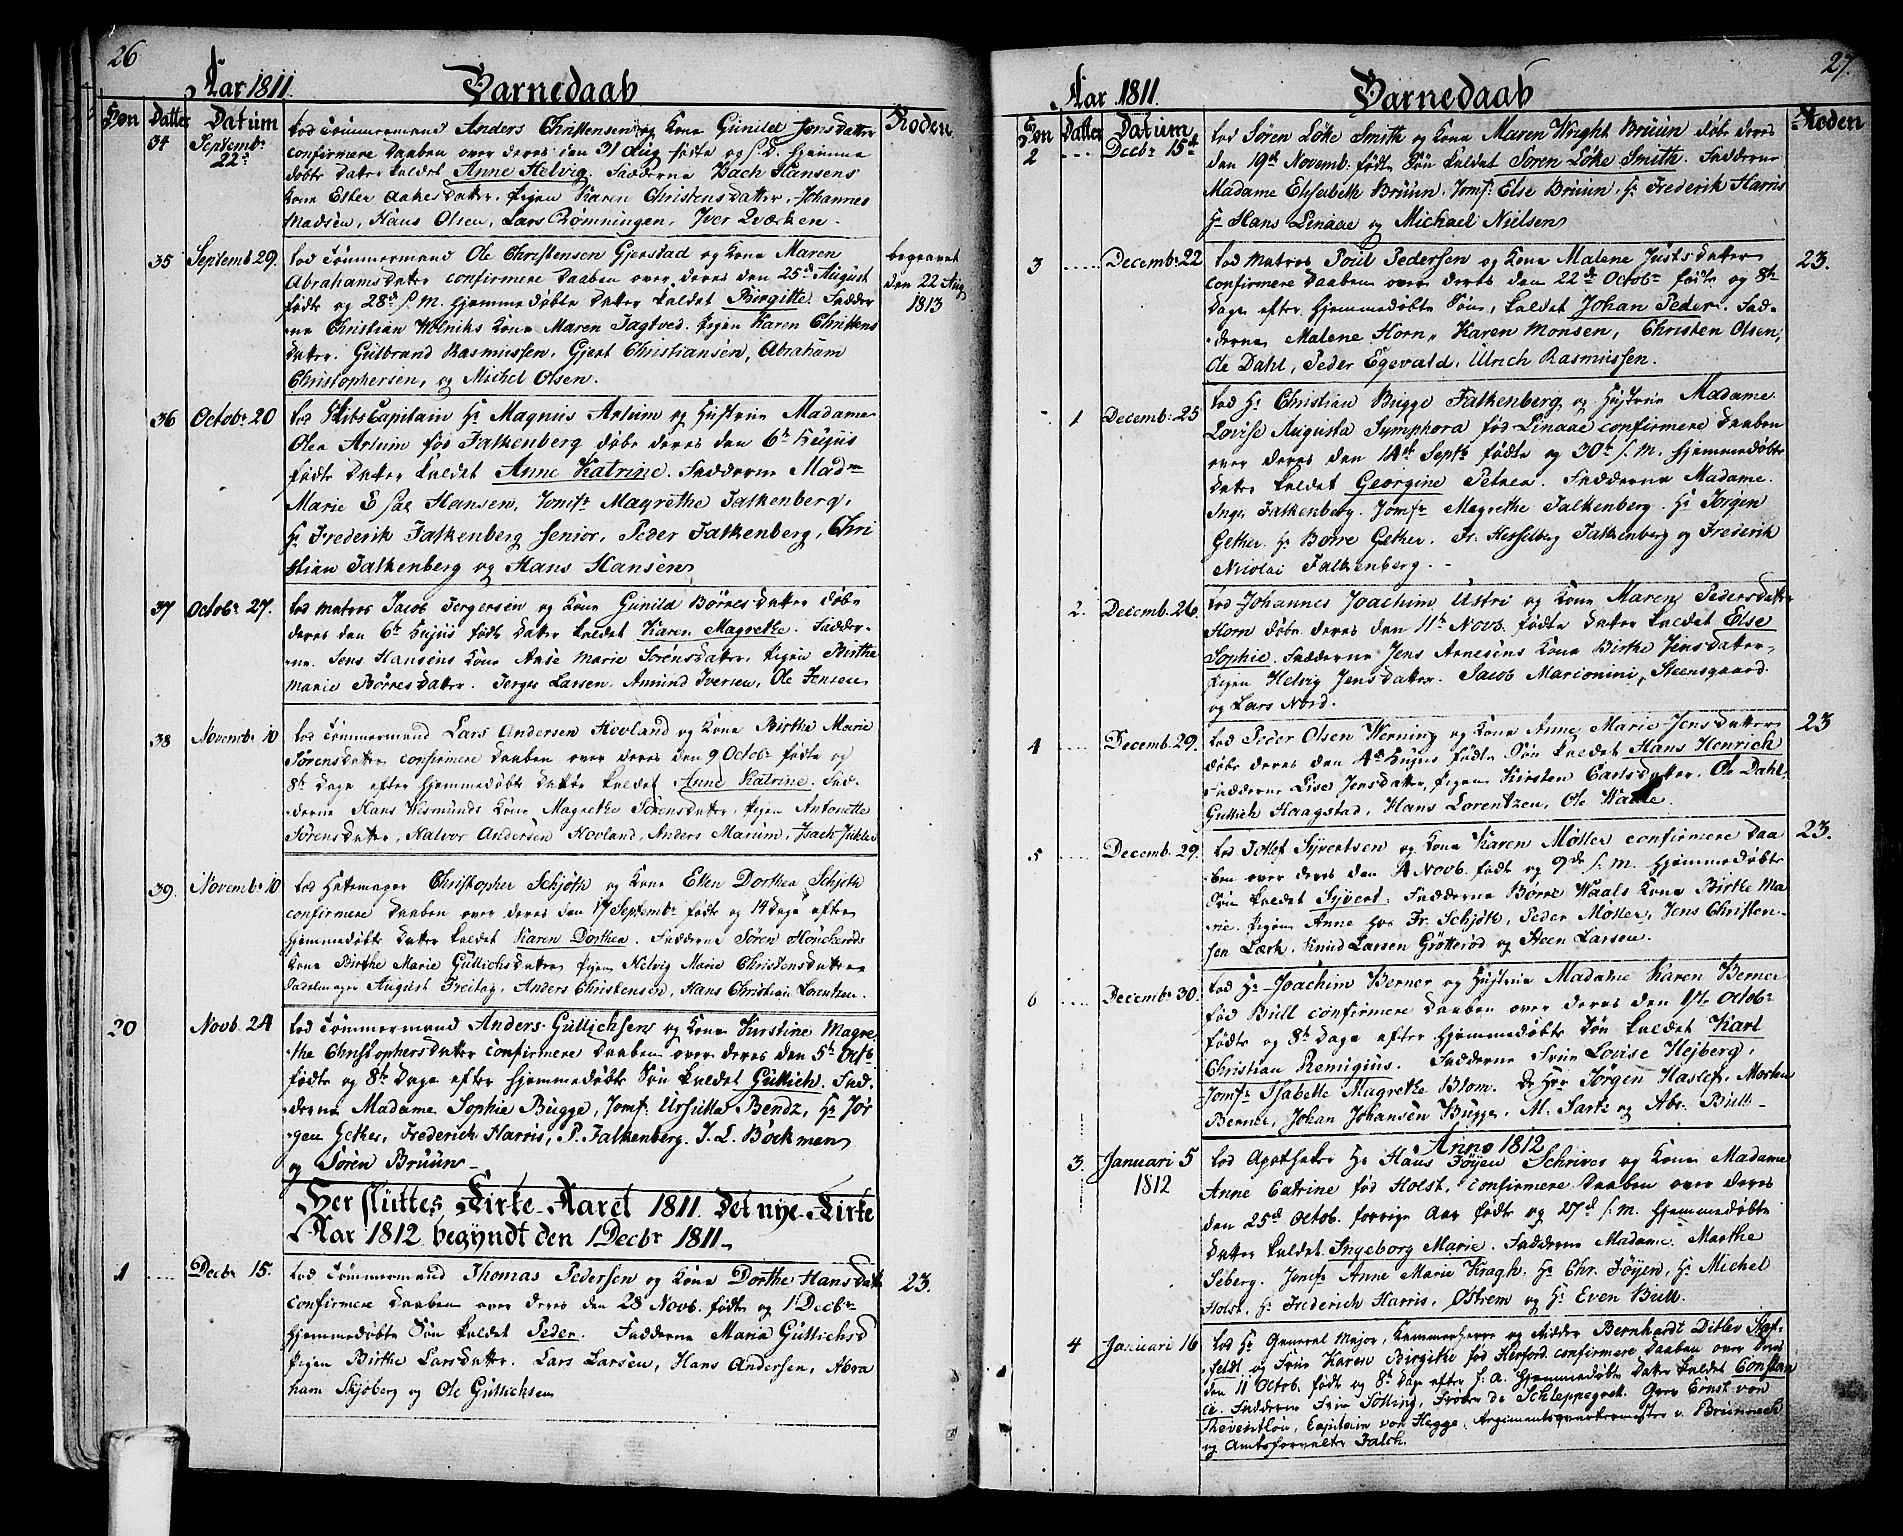 26
Aar 1811. Barnedaab
Søn Datter Datum Roden
34 Septembr 22d lod Tømmermand Anders Christensen og Kone Gunild Jensdatter
confirmere Daaben over deres den 31 Aug fødte og s.D. hjemme
døbte Datter kaldet Anne Helvig. Fadderne Bach Hansens
Kone Ester Aakesdatter, Pigen Karen Christensdatter, Johannes
Madsen, Hans Olsen, Lars Rømningen, Iver Qværken
35 Septemb 29. lod Tømmermand Ole Christensen Gjerstad og Kone Maren
Abrahamsdatter confirmere Daaben over deres den 25d August
fødte og 28d s.M. hjemmedøbte Datter kaldet Birgitte. Fadder
ne Christian Kone Maren Jagtved. Pigen Karen Christens
datter. Gulbrand Rasmussen, Gjert Christiansen, Abraham
Christophersen, og Michel Olsen.
begravet
den 22 Aug
1813
36 Octobr 20 lod Skibs Capitain Hr Magnus Arhum og Hustrue Madame
Olea Arhum fød Falkenberg døbe deres den 6te hujus
fødte Datter kaldet Anne Katrine. Fadderne Madm
Marie Hansen, Jomfr Magrethe Falkenberg,
Hr Frederik Falkenberg Senior, Peder Falkenberg, Chri
stian Falkenberg og Hans Hansen
37 Octobr 27. lod Matros Jacob Jergersen og Kone Gunild Børresdatter døbe
deres den 6te hujus fødte Datter kaldet Karen Magrethe. Fadder-
ne. Jens Hansens Kone Anse Marie Sørensdatter, Pigen Birthe
Marie Børresdatter. Jerges Larsen, Amund Iversen, Ole Jensen
38 Novembr 10 lod Tømmermand Lars Andersen Hovland og Kone Birthe Marie
Sørensdatter confirmere Daaben over deres den 9 Octobr fødte og
8te Dage efter hjemmedøbte Datter kaldet Anne Katrine. Fad-
derne Hans Wesmunds Kone Magrethe Sørensdatter, Pigen Antonette
Sørensdatter, Halvor Andersen Hovland, Anders Marum, Isach
39. Novembr 10 lod Hatemager Christopher Schjøth og Kone Ellen Dorthea Schjøth
confirmere Daaben over deres den 17 Septembr fødte og 14 Dage efter
hjemmedøbte Datter kaldet Karen Dorthea. Fadderne Søren Hønckerøds
Kone Birthe Marie Gullichsdatter Pigen Helvig Marie Christensdatter
Sadelmager August Freitag, Anders Christensen, Hans Christian Lorentzen.
20 Novb. 24 lod Tømmermand Anders Gullichsen og Kone Kirstine Magre
the Christophersdatter confirmere Daaben over deres den 5te Octb
fødte og 8te Dage efter hjemmedøbte Søn kaldet Gullich. Fad-
derne Madame Sophie Bugge, Jomf. Ursulla Bendz, Hr Jør
gen Gether, Frederich Harris, P. Falkenberg. J. L. Böckmen
og Søren Bruun
Her sluttes Kirke-Aaret 1811. Det nye Kirke
Aar 1812 begyndt den 1 Decbr 1811
1 Decbr 15. lod Tømmermand Thomas Pedersen og Kone Dorthe Hansdatt
confirmere Daaben over deres den 28 Novb. fødte og 1 Decbr
hjemmedøbte Søn kaldet Peder. Fadderne Maria Gullichsd
Pigen Birthe Larsdatter. Lars Larsen, Hans Andersen, Abra
ham Skjøberg og Ole Gullichsen
23.
27.
Aar 1811. Barnedaab
Søn Datter Datum Roden
2 Decbr 15d lod Søren Løke Smith og Kone Maren Wright Bruun døbe deres
den 19d Novemb. fødte Søn kaldet Søren Løke Smith. Fadderne
Madame Elisebeth Bruun, Jomf: Else Bruun, Hr Frederik Harris
Hr Hans Linaae og Michael Nielsen
3 Decembr 22 lod Matros Poul Pedersen og Kone Malene Justsdatter
confirmere Daaben over deres den 22d Octobr fødte og 8te
Dage efter hjemmedøbte Søn, kaldet Johan Peder. Fad-
derne Malene Horn, Karen Monsen, Christen Olsen,
Ole Dahl, Peder Egevald, Ulrich Rasmussen.
23.
1 Decemb. 25 lod Hr Christian Bugge Falkenberg og Hustrue Madame
Lovise Augusta Symphora fød Linaae confirmere Daaben
over deres den 14d Septb fødte og 30te s.M. hjemmedøbte
Datter kaldet Georgine Petrea. Fadderne Madame
Inger Falkenberg. Jomfr Magrethe Falkenberg. Hr Jørgen
Gether. Hr Børre Gether. Fr. Hesselberg Falkenberg og Frederik
Nicolai Falkenberg.
2. Decemb. 26 lod Johannes Joachim Ustri og Kone Maren Pedersdatter
Horn døbe deres den 11te Novb. fødte Datter kaldet Else
Sophie. Fadderne Jens Arnesens Kone Birthe Jensdatter,
Pigen Helvig Jensdatter. Jacob Marconini, Steensgaard
og Lars Nord.
4 Decemb. 29. lod Peder Olsen Werning og Kone Anne Marie Jensdatter
døbe deres den 4d hujus fødte Søn kaldet Hans Henrich
Fadderne Lise Jensdatter, Pigen Kirsten Carlsdatter, Ole Dahl
Gullich Haagstad, Hans Lorentzen, Ole Waale.
23
5 Decemb. 29. lod Tollef Syvertsen og Kone Karen Møller confirmere Daa
ben over deres den 4 Novb. født og 9de s.M. hjemmedøbte
Søn kaldet Syvert. Fadderne Børre Waals Kone Birthe Ma
rie. Pigen Anne hos Fr. Schjøth, Peder Møller, Jens Christen-
sen Læch, Knud Larsen Grötterød og Steen Larsen.
23.
6 Decembr 30. lod Hr Joachim Berner og Hustrue Madame Karen Berner
fød Bull confirmere Daaben over deres den 17de Octobr
fødte og 8te Dage efter hjemmedøbte Søn kaldet Karl
Christian Remigius. Fadderne Frue Lovise Hejberg,
Jomfr Isabelle Magrethe Blom. De Hrr Jørgen Haslef, Morten
Berner, Johan Johansen Bugge, M. Sartz og Abr. Bull.
Anno 1812
3. Januari 5 1812 lod Apotheker Hr Hans Føyen Schriver og Kone Madame
Anne Catrine fød Holst, confirmere Daaben over deres
den 25d Octob. forrige Aar fødte og 27d s.M. hjemmedøbte
Datter kaldet Ingeborg Marie. Fadderne Madame Marthe
Seberg. Jomfr Anne Marie Kragh. Hr Chr. Føyen, Hr Michel
Holst, Hr Frederich Harris, Østrem og Hr Even Bull.
4 Januari 16 lod Hr General Major, Kammerherre og Ridder Bernhardt Ditlev Staf-
feldt og Frue Karen Birgitte fød Herford. confirmere Daaben over deres
den 11 Octob. fødte og 8te Dage efter s.A. hjemmedøbte Datter kaldet Constan
ce. Fadderne Frue Sölling, Frøken de Schleppegrel. Grev Ernst von
Reventlou, Capitain von Hegge, Regimentsqvarteermester v. Brunneck
og Amtsforvalter Falch.